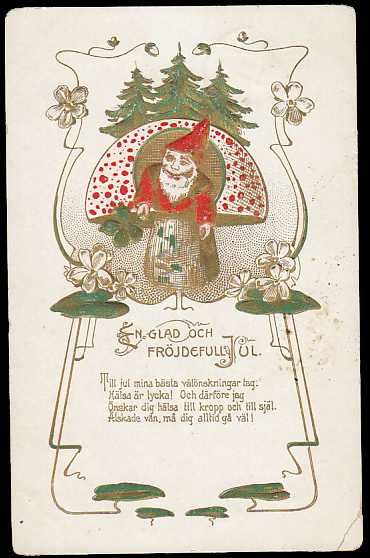 En glad och
fröjdefull Jul.
Till jul mina bästa välönskningar tag.
Hälsa är lycka! Och därföre jag
Önskar dig hälsa till kropp och till själ.
Älskade vän, må dig alltid gå väl!